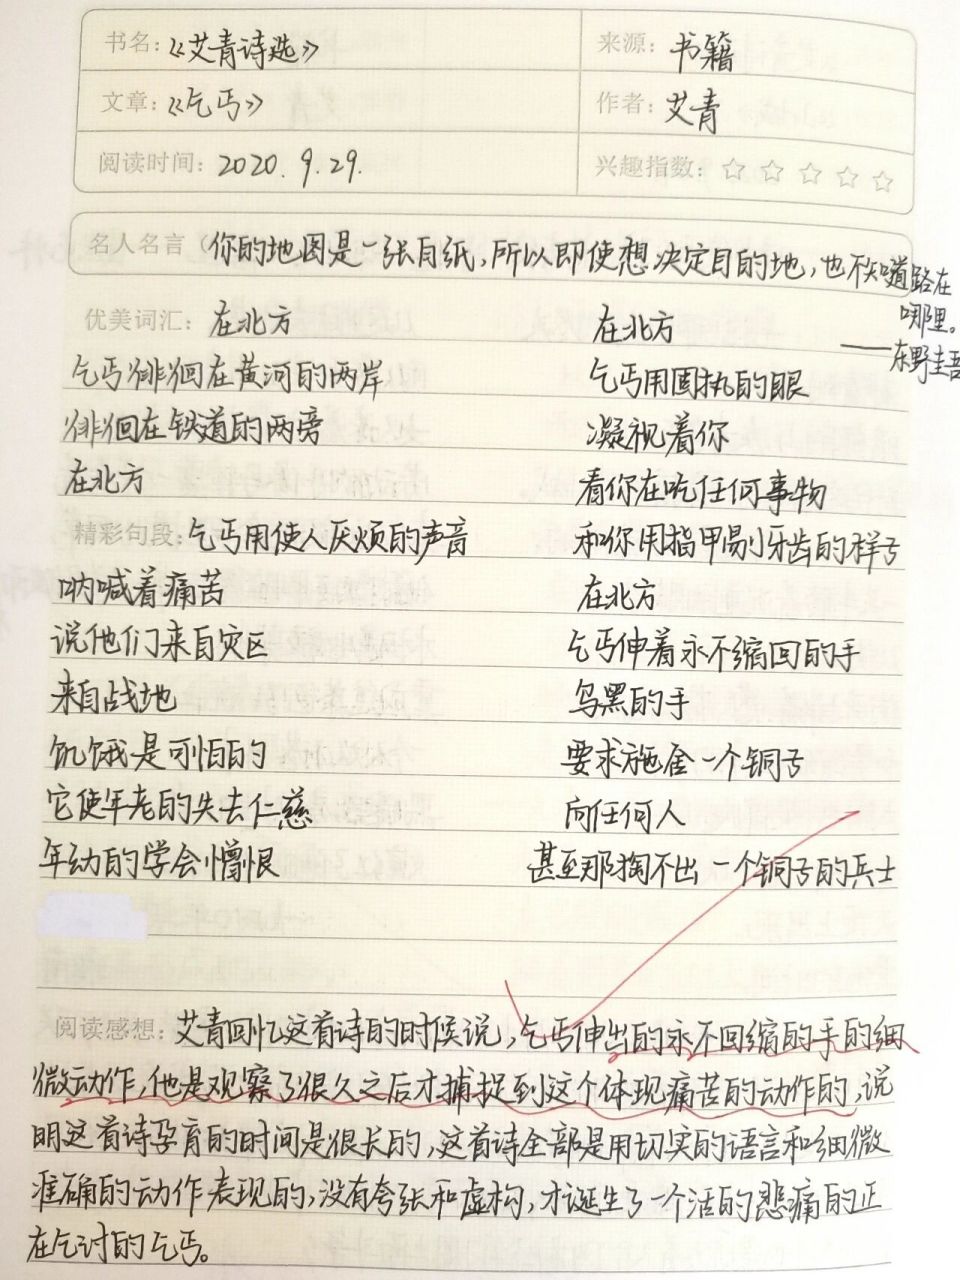 书名：《艾青诗选》
来源：书籍
文章：《乞丐》
作者：艾青
阅读时间：2020.9.29.
兴趣指数：☆☆☆☆☆
名人名言（你的地图是一张白纸，所以即使想决定目的地，也不知道路在
哪里。
——东野圭吾
优美词汇：在北方
乞丐徘徊在黄河的两岸
徘徊在铁道的两旁
在北方
精彩句段：乞丐用使人厌烦的声音
呐喊着痛苦
说他们来自灾区
来自战地
饥饿是可怕的
它使年老的失去仁慈
年幼的学会憎恨
在北方
乞丐用固执的眼
凝视着你
看你在吃任何事物
和你用指甲剔牙齿的样子
在北方
乞丐伸着永不缩回的手
乌黑的手
要求施舍一个铜子
向任何人
甚至那掏不出一个铜子的兵士
阅读感想：艾青回忆这首诗的时候说，乞丐伸出的永不回缩的手的细
微动作，他是观察了很久之后才捕捉到这个体现痛苦的动作的，说
明这首诗孕育的时间是很长的，这首诗全部是用切实的语言和细微
准确的动作表现的，没有夸张和虚构，才诞生了一个活的悲痛的正
在乞讨的乞丐。